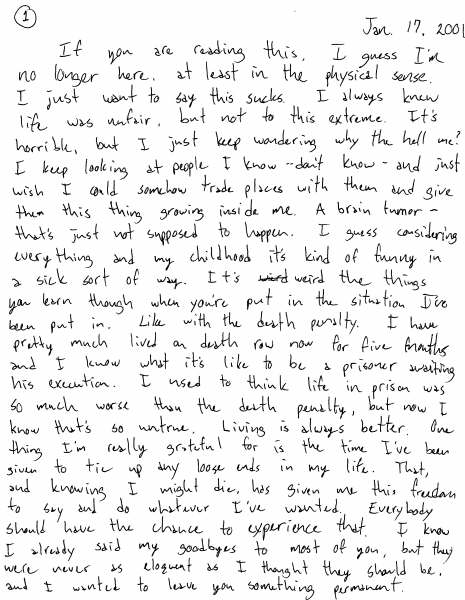 1
Jan. 17, 2001
If you are reading this, I guess I'm
no longer here, at least in the physical sense.
I just want to say this sucks. I always knew
life was unfair, but not to this extreme. It's
horrible, but I just keep wondering why the hell me?
I keep looking at people I know -- don't know - and just
wish I could somehow trade places with them and give
them this thing growing inside me. A brain tumor -
that's just not supposed to happen. I guess considering
everything and my childhood it's kind of funny in
a sick sort of way. It's weird the things
you learn though when you're put in the situation I've
been put in. Like with the death penalty. I have
pretty much lived on death row now for five months
and I know what it's like to be a prisoner awaiting
his execution. I used to think life in prison was
so much worse than the death penalty, but now I
know that's so untrue. Living is always better. One
thing I'm really grateful for is the time I've been
given to tie up any loose ends in my life. That,
and knowing I might die, has given me this freedom
to say and do whatever I've wanted. Everybody
should have the chance to experience that. I know
I already said my goodbyes to most of you, but they
were never as eloquent as I thought they should be,
and I wanted to leave you something permanent.